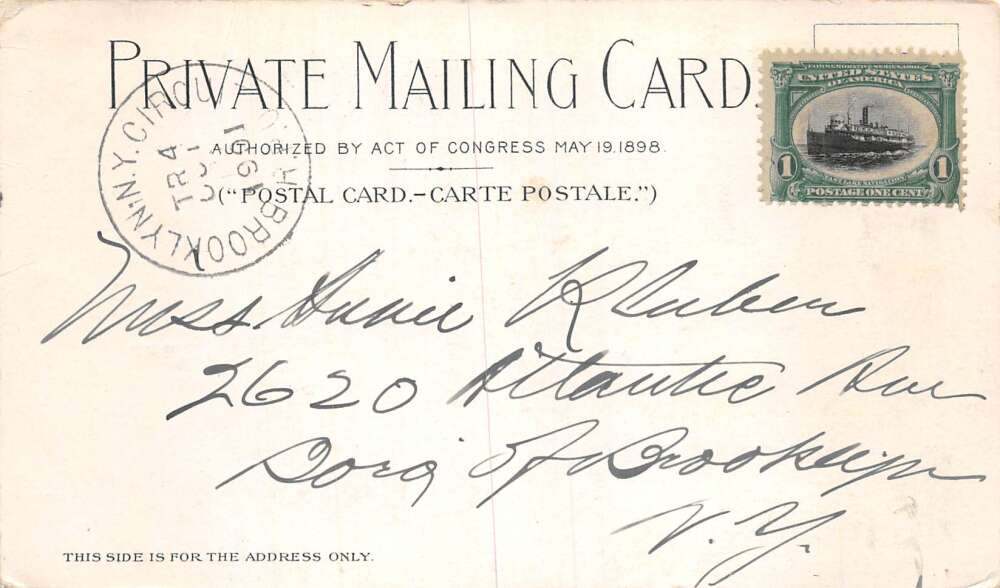 PRIVATE MAILING CARD.
AUTHORIZED BY ACT OF CONGRESS MAY 19. 1898.
("POSTAL CARD.-CARTE POSTALE.")
BROOKLYN.N.Y. CIRCUIT
TR 4
OCT
1901
UNITED STATES
OF AMERICA
1 1
POSTAGE ONE CENT
Miss
2620 Atlantic Ave
Boro of Brooklyn
N. Y.
THIS SIDE IS FOR THE ADDRESS ONLY.